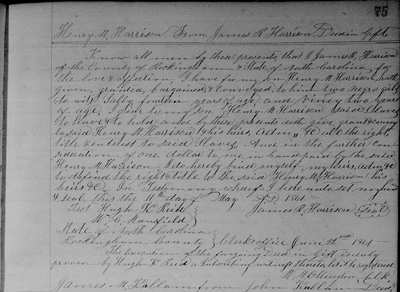 75
Henry M. Harrison From James R. Harrison Deed in gift
Know all men by these presents that I James R. Harrison
of the County of Rockingham & State of North Carolina for
the love & affection I have for my son Henry M Harrison, hath
given, granted, bargained & conveyed to him two negro girls
to wit: Sally fourteen years of age, and Vincy two years
of age, I give to my son Henry M Harrison said Slaves
to have & to hold and by these presents doth give, grant & convey
to said Henry M Harrison & his heirs, &c all the right
title & interest to said Slaves. And in the further con
sideration of one dollar to me in hand paid by the said
Henry M Harrison I do hereby bind myself, my heirs &c
to defend the right & title to the said Henry M Harrison his
heirs &c. In Testimony whereof I hereunto set my hand
& seal, this 11th day of May AD 1861
Test Hugh K Reid James R. Harrison Seal
W. G. Mansfield
State of North Carolina
Rockingham County Clerks office June 1861
The execution of the foregoing Deed in gift is duly
proven by Hugh K. Reid a subscribing witness thereto let it be registered
clk
James M. Fallam from John Fallam Deed